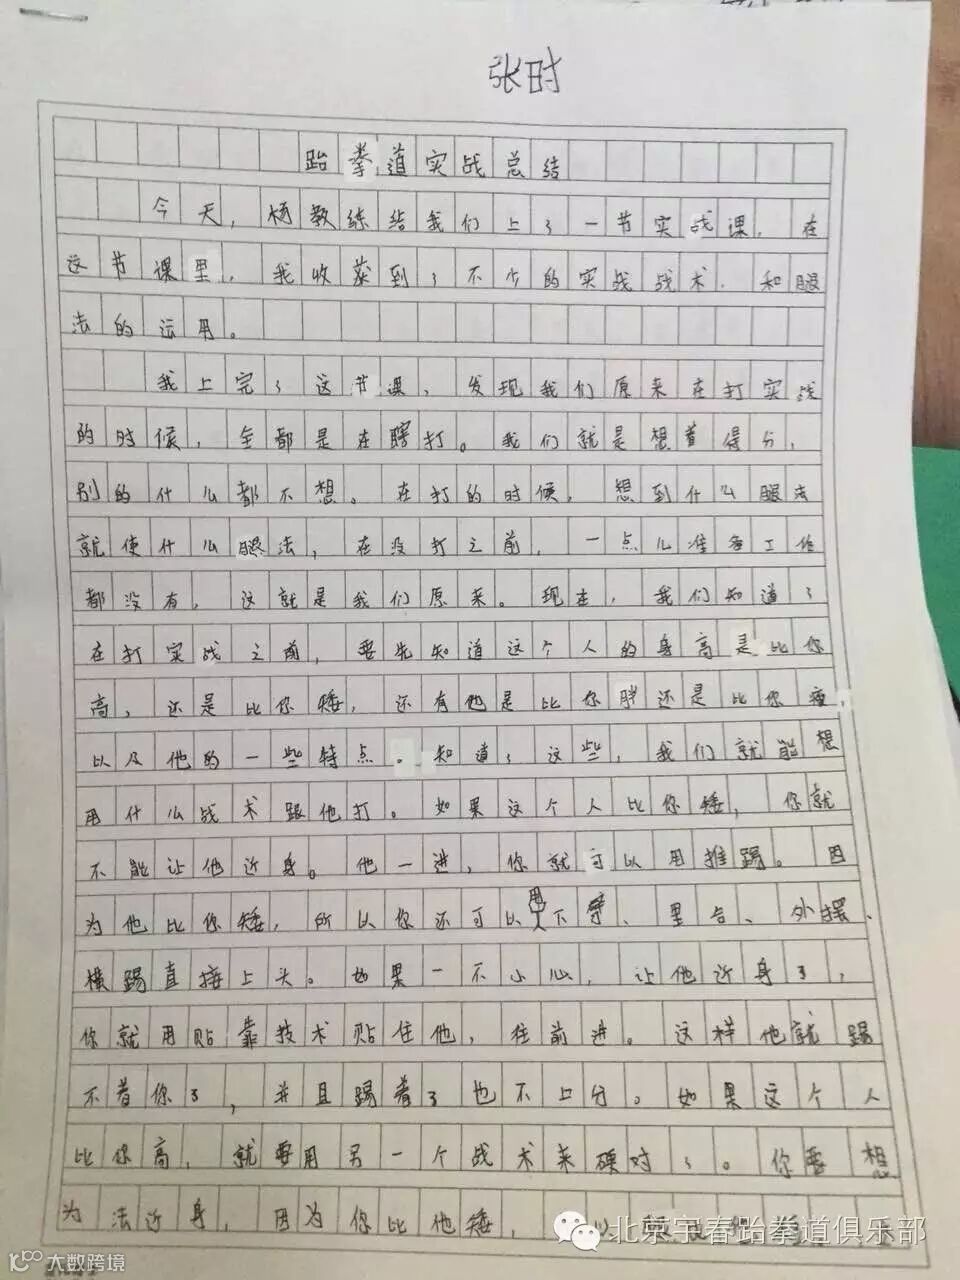 张时
跆拳道实战总结
今天，杨教练给我们上了一节实战课，在
这节课里，我收获到了不少的实战战术，和腿
法的运用。
我上完了这节课，发现我们原来在打实战
的时候，全都是在瞎打。我们就是想着得分，
别的什么都不想。在打的时候，想到什么腿法
就使什么腿法，在没打之前，一点儿准备工作
都没有，这就是我们原来。现在，我们知道了
在打实战之前，要先知道这个人的身高是比你
高，还是比你矮，还有他是比你胖还是比你瘦，
以及他的一些特点。知道了这些，我们就能想
用什么战术跟他打。如果这个人比你矮，你就
不能让他近身。他一进，你就可以用推踢。因
为他比你矮，所以你还可以用下劈、里合、外摆、
横踢直接上头。如果一不小心，让他近身了，
你就用贴靠技术贴住他，往前进。这样他就踢
不着你了，并且踢着了也不上分。如果这个人
比你高，就要用另一个战术来硬对了。你要想
为法近身，因为你比他矮，
北京宇春跆拳道俱乐部
大数跨境